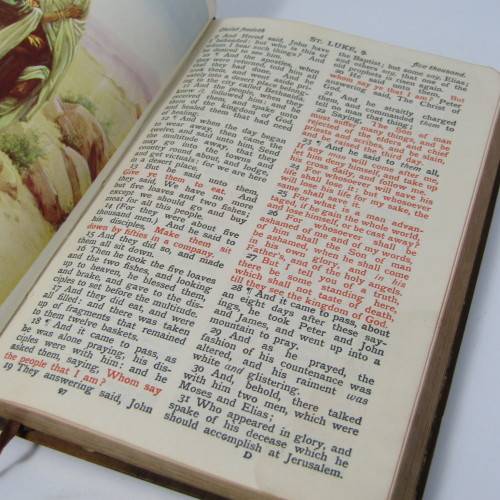 Christ feedeth
ST. LUKE, 9.
five thousand.
9 And Herod said, John have
I beheaded: but who is this of
whom I hear such things? And
he desired to see him.
10 ¶ And the apostles, when
they were returned, told him all
that they had done. And he took
them, and went aside privately
into a desert place belonging
to the city called Bethsaida.
11 And the people, when they
knew it, followed him: and he
received them, and spake unto
them of the kingdom of God,
and healed them that had need
of healing.
12 And when the day began
to wear away, then came the
twelve, and said unto him, Send
the multitude away, that they
may go into the towns and
country round about, and lodge,
and get victuals: for we are here
in a desert place.
13 But he said unto them,
Give ye them to eat. And
they said, We have no more
but five loaves and two fishes;
except we should go and buy
meat for all this people.
14 (For they were about five
thousand men.) And he said to
his disciples, Make them sit
down by fifties in a company.
15 And they did so, and made
them all sit down.
16 Then he took the five loaves
and the two fishes, and looking
up to heaven, he blessed them,
and brake, and gave to the disciples
to set before the multitude.
17 And they did eat, and were
all filled: and there was taken
up of fragments that remained
to them twelve baskets.
18 ¶ And it came to pass, as
he was alone praying, his disciples
were with him: and he
asked them, saying, Whom say
the people that I am?
19 They answering said, John
97
the Baptist; but some say, Elias;
and others say, that one of the
old prophets is risen again.
20 He said unto them, But
whom say ye that I am? Peter
answering said, The Christ of
God.
21 And he straitly charged
them, and commanded them to
tell no man that thing;
22 Saying, The Son of man
must suffer many things, and be
rejected of the elders and chief
priests and scribes, and be slain,
and be raised the third day.
23 ¶ And he said to them all,
If any man will come after me,
let him deny himself, and take up
his cross daily, and follow me.
24 For whosoever will save his
life shall lose it: but whosoever
will lose his life for my sake, the
same shall save it.
25 For what is a man advantaged,
if he gain the whole world,
and lose himself, or be cast away?
26 For whosoever shall be
ashamed of me and of my words,
of him shall the Son of man
be ashamed, when he shall come
in his own glory, and in his
Father's, and of the holy angels.
27 But I tell you of a truth,
there be some standing here,
which shall not taste of death,
till they see the kingdom of God.
28 ¶ And it came to pass about
an eight days after these sayings,
he took Peter and John
and James, and went up into a
mountain to pray.
29 And as he prayed, the
fashion of his countenance was
altered, and his raiment was
white and glistering.
30 And, behold, there talked
with him two men, which were
Moses and Elias:
31 Who appeared in glory, and
spake of his decease which he
should accomplish at Jerusalem.
D